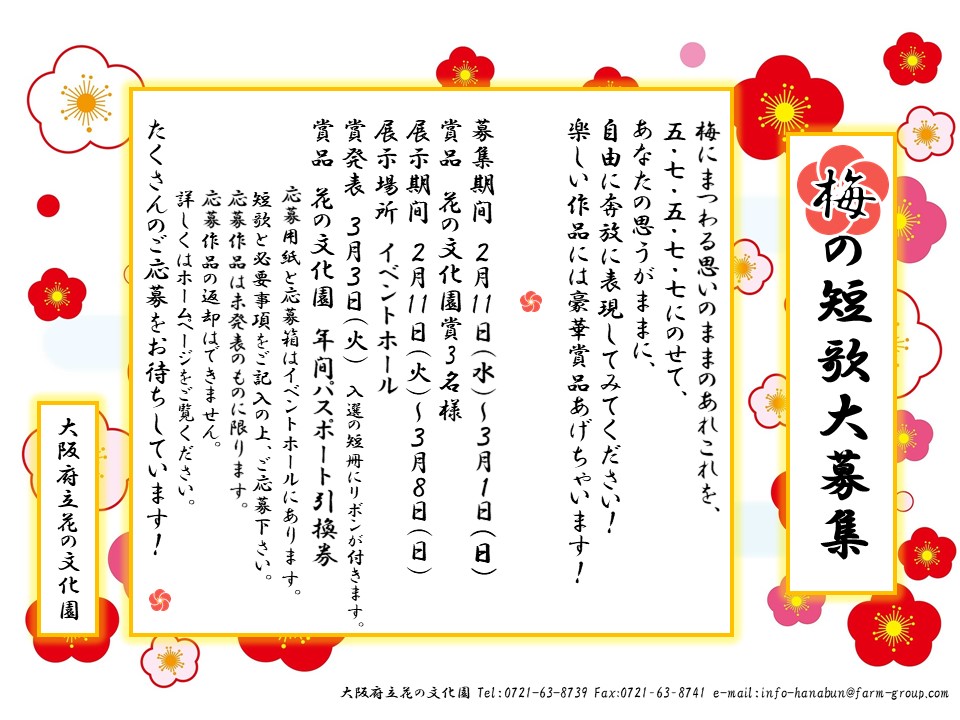 梅の短歌大募集
梅にまつわる思いのままのあれこれを、
五・七・五・七・七にのせて、
あなたの思うがままに、
自由に奔放に表現してみてください！
楽しい作品には豪華賞品あげちゃいます！
募集期間 2月11日(水)～3月1日(日)
賞品 花の文化園賞3名様
展示期間 2月11日(火)～3月8日(日)
展示場所 イベントホール
賞発表 3月3日(火) 入選の短冊にリボンが付きます。
賞品 花の文化園 年間パスポート引換券
応募用紙と応募箱はイベントホールにあります。
短歌と必要事項をご記入の上、ご応募下さい。
応募作品は未発表のものに限ります。
応募作品の返却はできません。
詳しくはホームページをご覧ください。
たくさんのご応募をお待ちしています！
大阪府立花の文化園
大阪府立花の文化園 Tel:0721-63-8739 Fax:0721-63-8741 e-mail:info-hanabun@farm-group.com